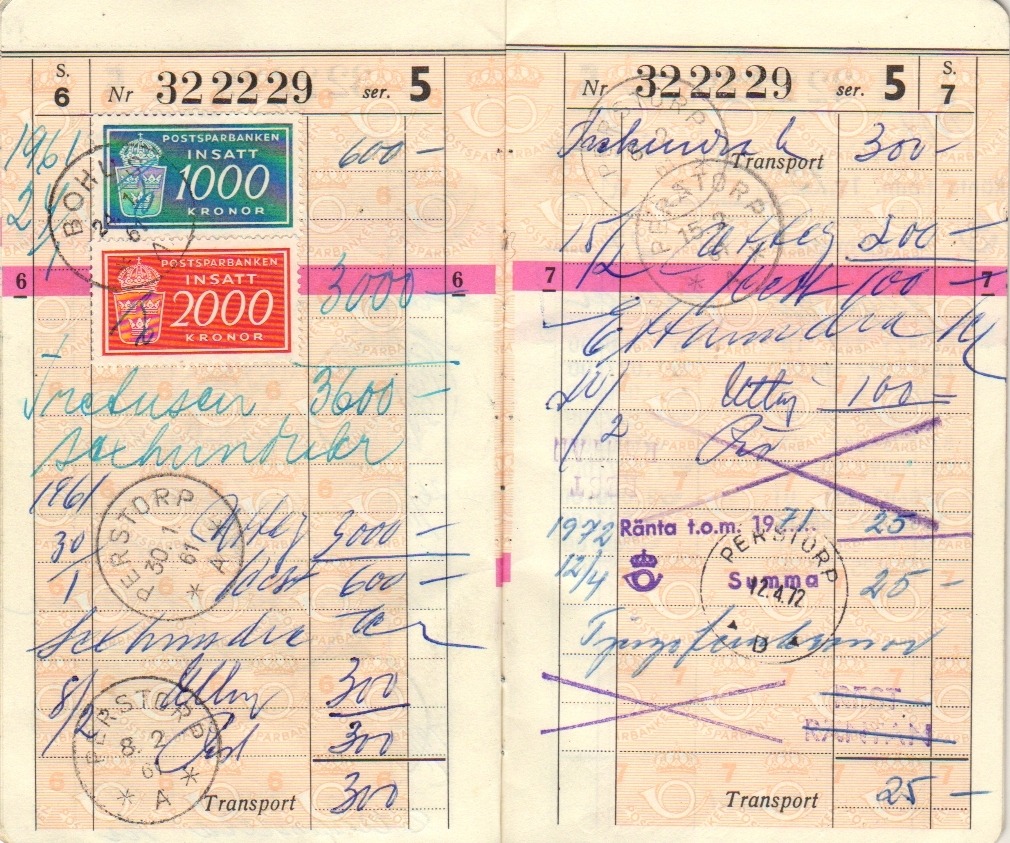 S. 6 Nr 322229 ser. 5
1961 POSTSPARBANKEN 600-
INSATT
1000
KRONOR
BOHU
6 POSTSPARBANKEN 3000- 6
INSATT
2000
KRONOR
Tretusen 3600-
sexhundra kr
1961
PERSTORP 30.1 61 A
30/1 3000-
Rest 600-
Sexhundra kr
8/2 300
PERSTORP 8.2 61 A
Rest 300
Transport 300
Nr 322229 ser. 5 S. 7
PERSTORP
Trehundra k Transport 300-
PERSTORP 15.2
15/2 200-
7 Rest 100- 7
Etthundra kr
20/2 Uttag 100
1972 Ränta t.o.m. 1971. 25
12/4 Summa 25-
PERSTORP 12.4.72 D
Tjugofem kronor
REST
RÄNTAN
Transport 25-